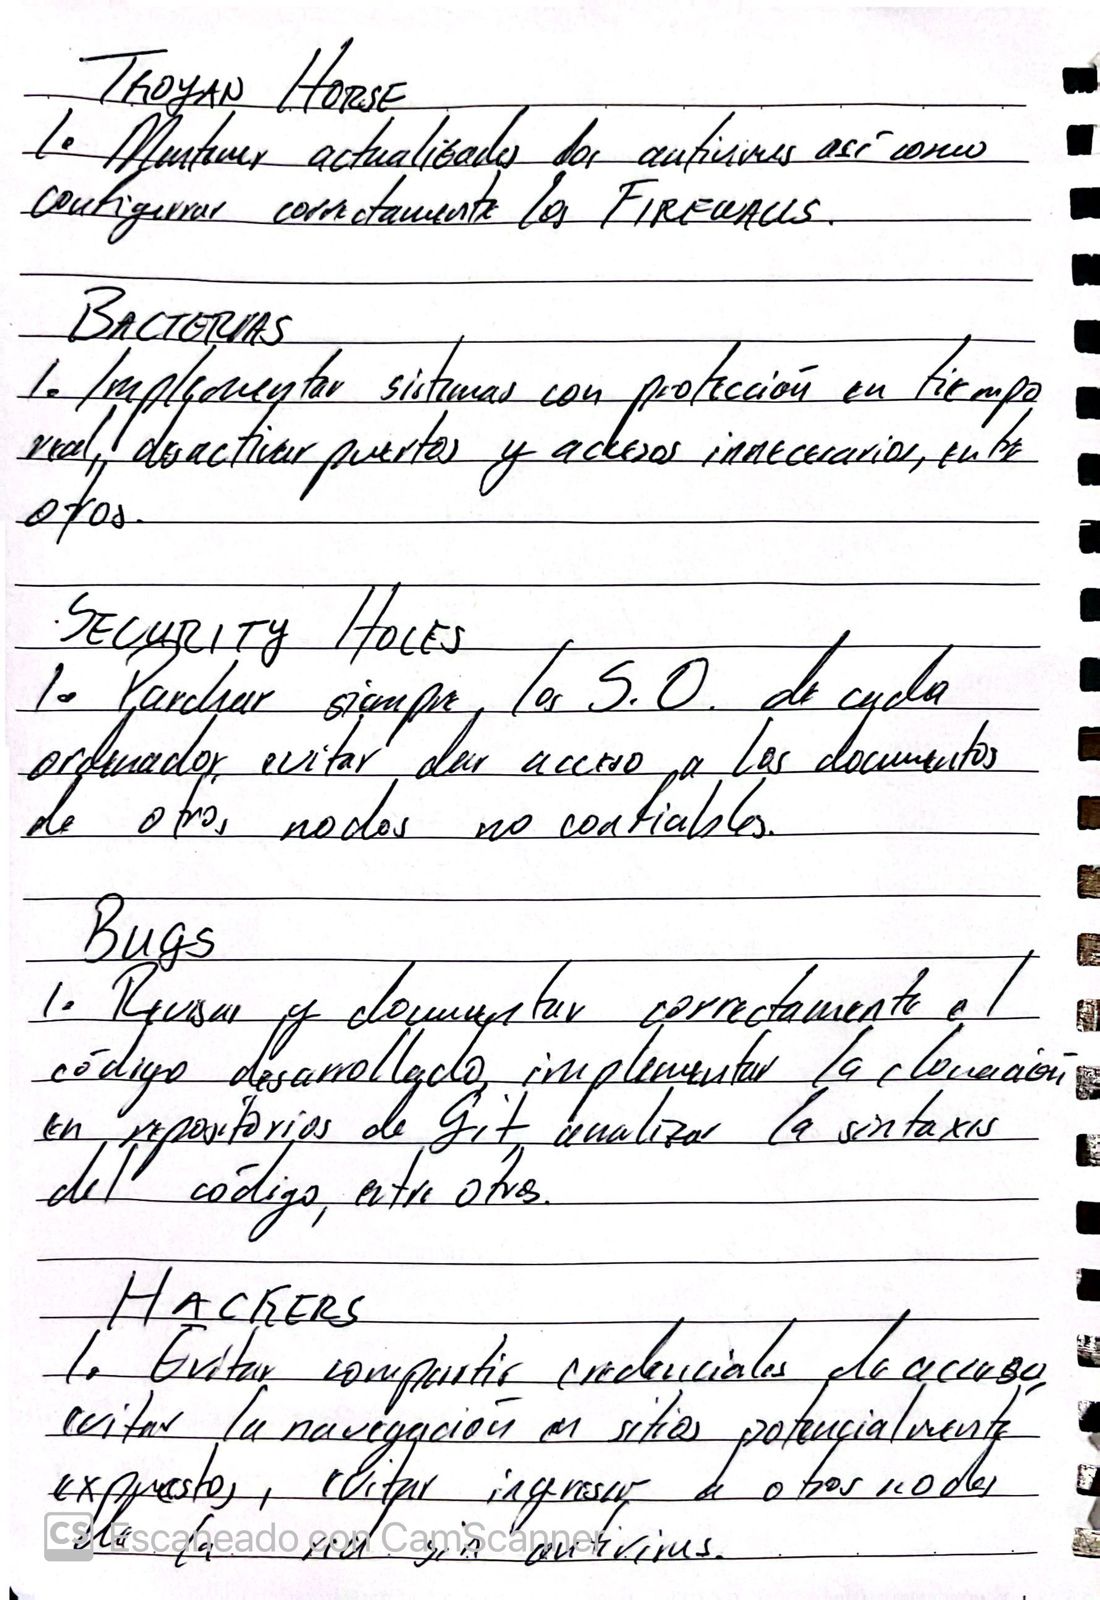 TROYAN HORSE
1. Mantener actualizados los antivirus así como
configurar correctamente los FIREWALLS.
BACTERIAS
1. Implementar sistemas con protección en tiempo
real, desactivar puertos y accesos innecesarios, entre
otros.
SECURITY HOLES
1. Parchar siempre los S.O. de cada
ordenador, evitar dar acceso a los documentos
de otros nodos no confiables.
BUGS
1. Revisar y documentar correctamente el
código desarrollado, implementar la clonación
en repositorios de Git, analizar la sintaxis
del código, entre otros.
HACKERS
1. Evitar compartir credenciales de acceso,
evitar la navegación en sitios potencialmente
expuestos, evitar ingresar a otros nodos
de la red sin antivirus.
CS Escaneado con CamScanner